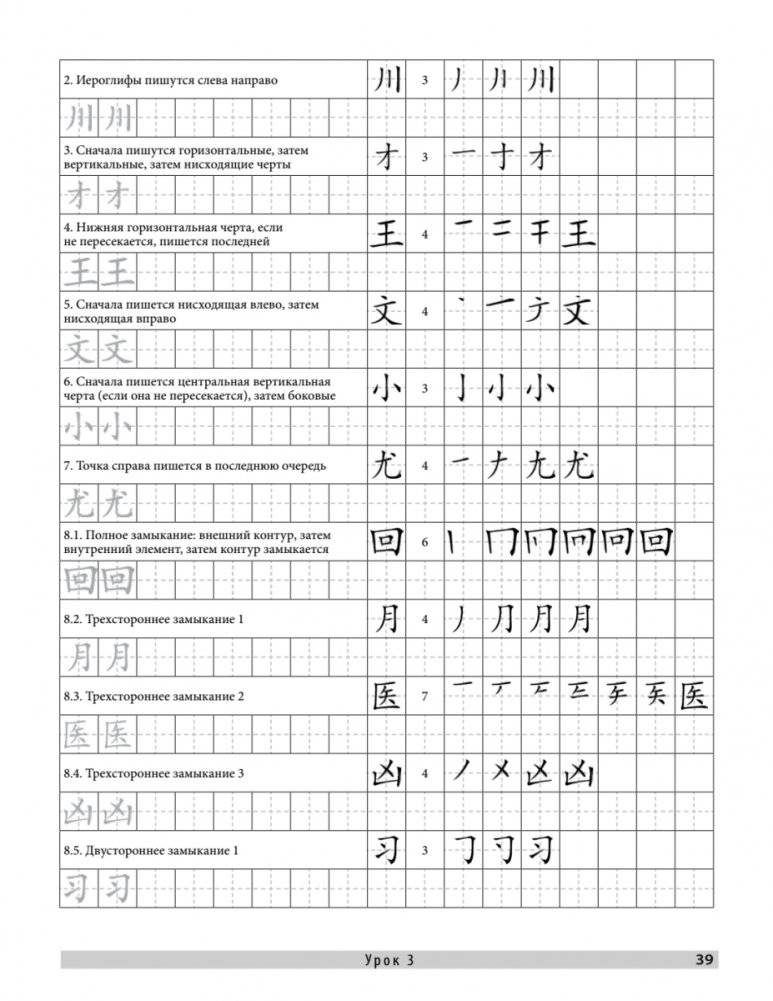 2. Иероглифы пишутся слева направо 川 3 丿 川
川 川
3. Сначала пишутся горизонтальные, затем
вертикальные, затем нисходящие черты 才 3 一 十 才
才 才
4. Нижняя горизонтальная черта, если
не пересекается, пишется последней 王 4 一 二 干 王
王 王
5. Сначала пишется нисходящая влево, затем
нисходящая вправо 文 4 丶 亠 文
文 文
6. Сначала пишется центральная вертикальная
черта (если она не пересекается), затем боковые 小 3 亅 小
小 小
7. Точка справа пишется в последнюю очередь 尤 4 一 𠂇 尢 尤
尤 尤
8.1. Полное замыкание: внешний контур, затем
внутренний элемент, затем контур замыкается 回 6 丨 冂 回
回 回
8.2. Трехстороннее замыкание 1 月 4 丿 ⺆ 月
月 月
8.3. Трехстороннее замыкание 2 医 7 一 医
医 医
8.4. Трехстороннее замыкание 3 凶 4 丿 㐅 凶
凶 凶
8.5. Двустороннее замыкание 1 习 3 𠃌 习
习 习
Урок 3 39